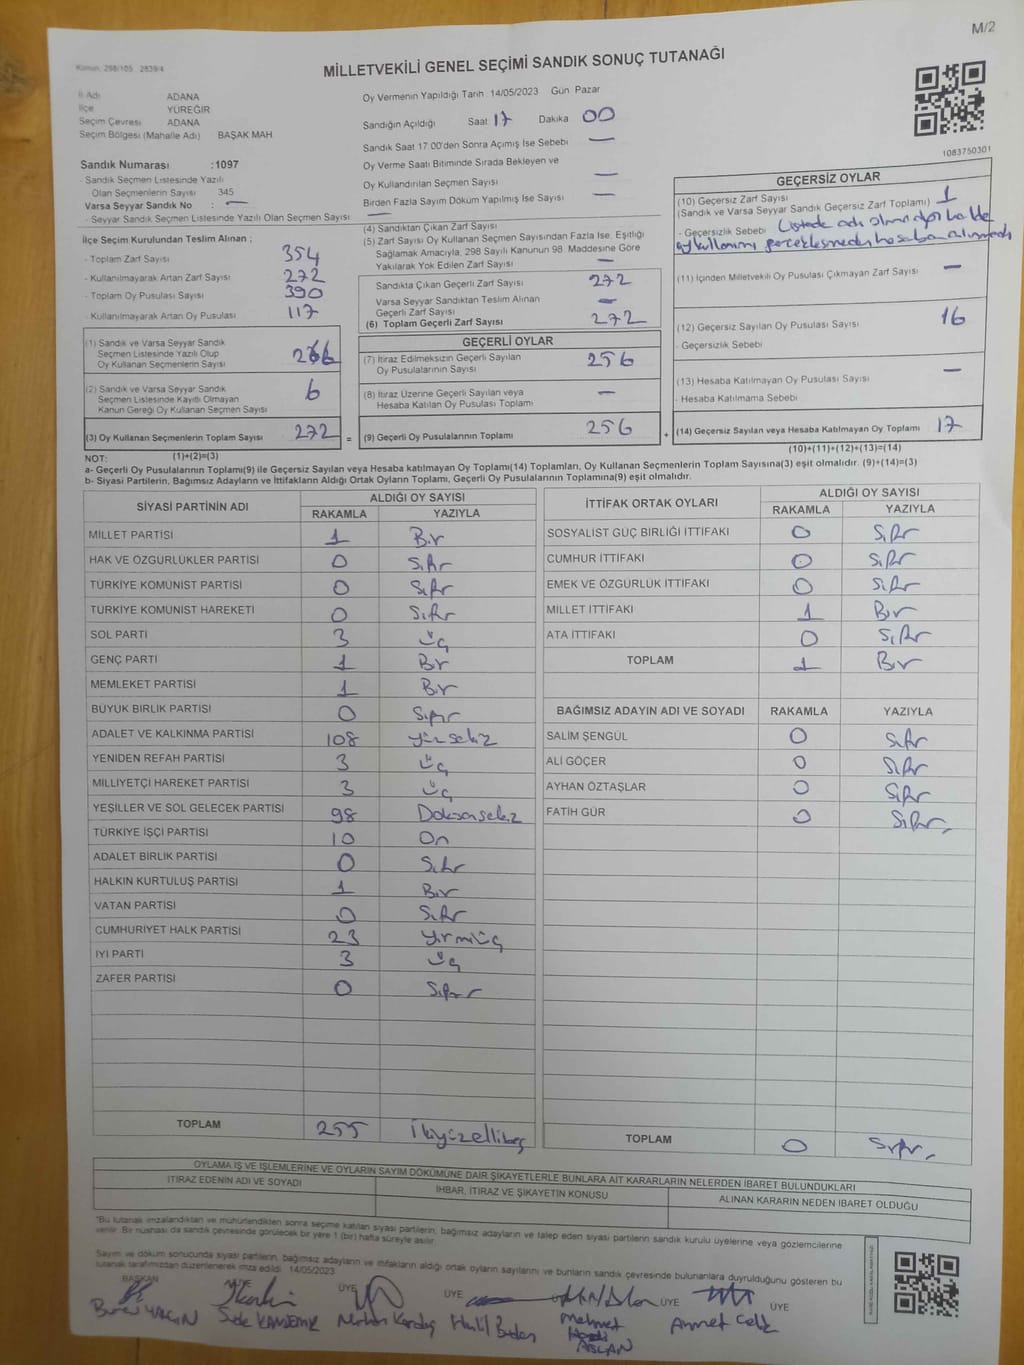 M/2
Kanun: 298/105 2839/4
MİLLETVEKİLİ GENEL SEÇİMİ SANDIK SONUÇ TUTANAĞI
İl Adı ADANA
İlçe YÜREĞİR
Seçim Çevresi ADANA
Seçim Bölgesi (Mahalle Adı) BAŞAK MAH.
Sandık Numarası :1097
- Sandık Seçmen Listesinde Yazılı
Olan Seçmenlerin Sayısı 345
Varsa Seyyar Sandık No : —
- Seyyar Sandık Seçmen Listesinde Yazılı Olan Seçmen Sayısı —
Oy Vermenin Yapıldığı Tarih 14/05/2023 Gün Pazar
Sandığın Açıldığı Saat 17 Dakika 00
Sandık Saat 17:00'den Sonra Açımış İse Sebebi —
Oy Verme Saati Bitiminde Sırada Bekleyen ve
Oy Kullandırılan Seçmen Sayısı —
Birden Fazla Sayım Döküm Yapılmış İse Sayısı —
1083750301
İlçe Seçim Kurulundan Teslim Alınan ;
- Toplam Zarf Sayısı 354
- Kullanılmayarak Artan Zarf Sayısı 272
- Toplam Oy Pusulası Sayısı 390
- Kullanılmayarak Artan Oy Pusulası 117
(1) Sandık ve Varsa Seyyar Sandık
Seçmen Listesinde Yazılı Olup
Oy Kullanan Seçmenlerin Sayısı 266
(2) Sandık ve Varsa Seyyar Sandık
Seçmen Listesinde Kayıtlı Olmayan
Kanun Gereği Oy Kullanan Seçmen Sayısı 6
(3) Oy Kullanan Seçmenlerin Toplam Sayısı 272 =
(1)+(2)=(3)
(4) Sandıktan Çıkan Zarf Sayısı
(5) Zarf Sayısı Oy Kullanan Seçmen Sayısından Fazla İse, Eşitliği
Sağlamak Amacıyla, 298 Sayılı Kanunun 98. Maddesine Göre
Yakılarak Yok Edilen Zarf Sayısı —
Sandıkta Çıkan Geçerli Zarf Sayısı 272
Varsa Seyyar Sandıktan Teslim Alınan
Geçerli Zarf Sayısı —
(6) Toplam Geçerli Zarf Sayısı 272
GEÇERLİ OYLAR
(7) İtiraz Edilmeksizin Geçerli Sayılan
Oy Pusulalarının Sayısı 256
(8) İtiraz Üzerine Geçerli Sayılan veya
Hesaba Katılan Oy Pusulası Toplamı —
(9) Geçerli Oy Pusulalarının Toplamı 256 +
GEÇERSİZ OYLAR
(10) Geçersiz Zarf Sayısı
(Sandık ve Varsa Seyyar Sandık Geçersiz Zarf Toplamı) 1
- Geçersizlik Sebebi Listede adı olmadığı halde
oy kullanımı gerçekleşmedi hesaba alınmadı
(11) İçinden Milletvekili Oy Pusulası Çıkmayan Zarf Sayısı —
(12) Geçersiz Sayılan Oy Pusulası Sayısı 16
- Geçersizlik Sebebi
(13) Hesaba Katılmayan Oy Pusulası Sayısı —
- Hesaba Katılmama Sebebi
(14) Geçersiz Sayılan veya Hesaba Katılmayan Oy Toplamı 17
(10)+(11)+(12)+(13)=(14)
NOT:
a- Geçerli Oy Pusulalarının Toplamı(9) ile Geçersiz Sayılan veya Hesaba katılmayan Oy Toplamı(14) Toplamları, Oy Kullanan Seçmenlerin Toplam Sayısına(3) eşit olmalıdır. (9)+(14)=(3)
b- Siyasi Partilerin, Bağımsız Adayların ve İttifakların Aldığı Ortak Oyların Toplamı, Geçerli Oy Pusulalarının Toplamına(9) eşit olmalıdır.
SİYASİ PARTİNİN ADI ALDIĞI OY SAYISI
RAKAMLA YAZIYLA
MİLLET PARTİSİ 1 Bir
HAK VE ÖZGÜRLÜKLER PARTİSİ 0 Sıfır
TÜRKİYE KOMÜNİST PARTİSİ 0 Sıfır
TÜRKİYE KOMÜNİST HAREKETİ 0 Sıfır
SOL PARTİ 3 Üç
GENÇ PARTİ 1 Bir
MEMLEKET PARTİSİ 1 Bir
BÜYÜK BİRLİK PARTİSİ 0 Sıfır
ADALET VE KALKINMA PARTİSİ 108 yüzsekiz
YENİDEN REFAH PARTİSİ 3 Üç
MİLLİYETÇİ HAREKET PARTİSİ 3 Üç
YEŞİLLER VE SOL GELECEK PARTİSİ 98 Doksansekiz
TÜRKİYE İŞÇİ PARTİSİ 10 On
ADALET BİRLİK PARTİSİ 0 Sıfır
HALKIN KURTULUŞ PARTİSİ 1 Bir
VATAN PARTİSİ 0 Sıfır
CUMHURİYET HALK PARTİSİ 23 Yirmiüç
İYİ PARTİ 3 Üç
ZAFER PARTİSİ 0 Sıfır
TOPLAM 255 İkiyüzellibeş
İTTİFAK ORTAK OYLARI ALDIĞI OY SAYISI
RAKAMLA YAZIYLA
SOSYALİST GÜÇ BİRLİĞİ İTTİFAKI 0 Sıfır
CUMHUR İTTİFAKI 0 Sıfır
EMEK VE ÖZGÜRLÜK İTTİFAKI 0 Sıfır
MİLLET İTTİFAKI 1 Bir
ATA İTTİFAKI 0 Sıfır
TOPLAM 1 Bir
BAĞIMSIZ ADAYIN ADI VE SOYADI RAKAMLA YAZIYLA
SALİM ŞENGÜL 0 Sıfır
ALİ GÖÇER 0 Sıfır
AYHAN ÖZTAŞLAR 0 Sıfır
FATİH GÜR 0 Sıfır
TOPLAM 0 Sıfır
OYLAMA İŞ VE İŞLEMLERİNE VE OYLARIN SAYIM DÖKÜMÜNE DAİR ŞİKAYETLERLE BUNLARA AİT KARARLARIN NELERDEN İBARET BULUNDUKLARI
İTİRAZ EDENİN ADI VE SOYADI İHBAR, İTİRAZ VE ŞİKAYETİN KONUSU ALINAN KARARIN NEDEN İBARET OLDUĞU
*Bu tutanak imzalandıktan ve mühürlendikten sonra seçime katılan siyasi partilerin, bağımsız adayların ve talep eden siyasi partilerin sandık kurulu üyelerine veya gözlemcilerine
verilir. Bir nüshası da sandık çevresinde görülecek bir yere 1 (bir) hafta süreyle asılır.
Sayım ve döküm sonucunda siyasi partilerin, bağımsız adayların ve ittifakların aldığı ortak oyların sayılarını ve bunların sandık çevresinde bulunanlara duyrulduğunu gösteren bu
tutanak tarafımızdan düzenlenerek imza edildi. 14/05/2023
BAŞKAN ÜYE ÜYE ÜYE ÜYE ÜYE
Mehmet
ASLAN
Ahmet Çelik